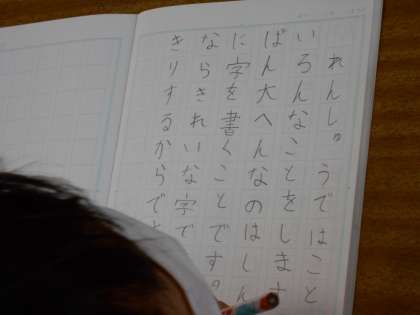 れんし。うではこと
いろんなことをしま
ばん大へんなのはしん
に字を書くことです。
ならきれいな字で
きりするからで